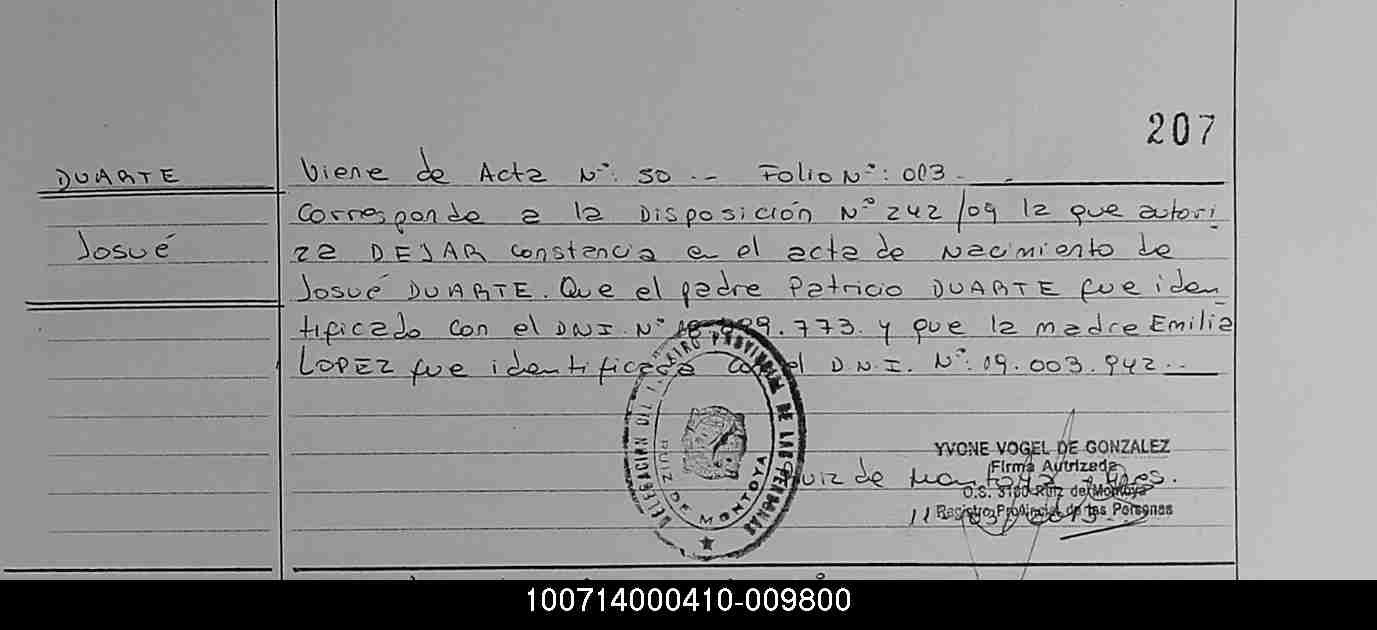 207
DUARTE
Josué
Viene de Acta Nº: 50 -- Folio Nº: 003.
Corresponde a la Disposición Nº 242/09 la que autori
za DEJAR constancia en el acta de Nacimiento de
Josué DUARTE. Que el padre Patricio DUARTE fue iden
tificado con el DNI. Nº 773. y que la madre Emilia
LOPEZ fue identificada con el D.N.I. Nº: 19.003.942..
DELEGACION DEL PROVINCIAL DE LAS PERSONAS
RUIZ DE MONTOYA
YVONE VOGEL DE GONZALEZ
Firma Autrizada
Ruiz de Montoya
O.S. 3160-Ruiz de Montoya
Registro Provincial de las Personas
100714000410-009800